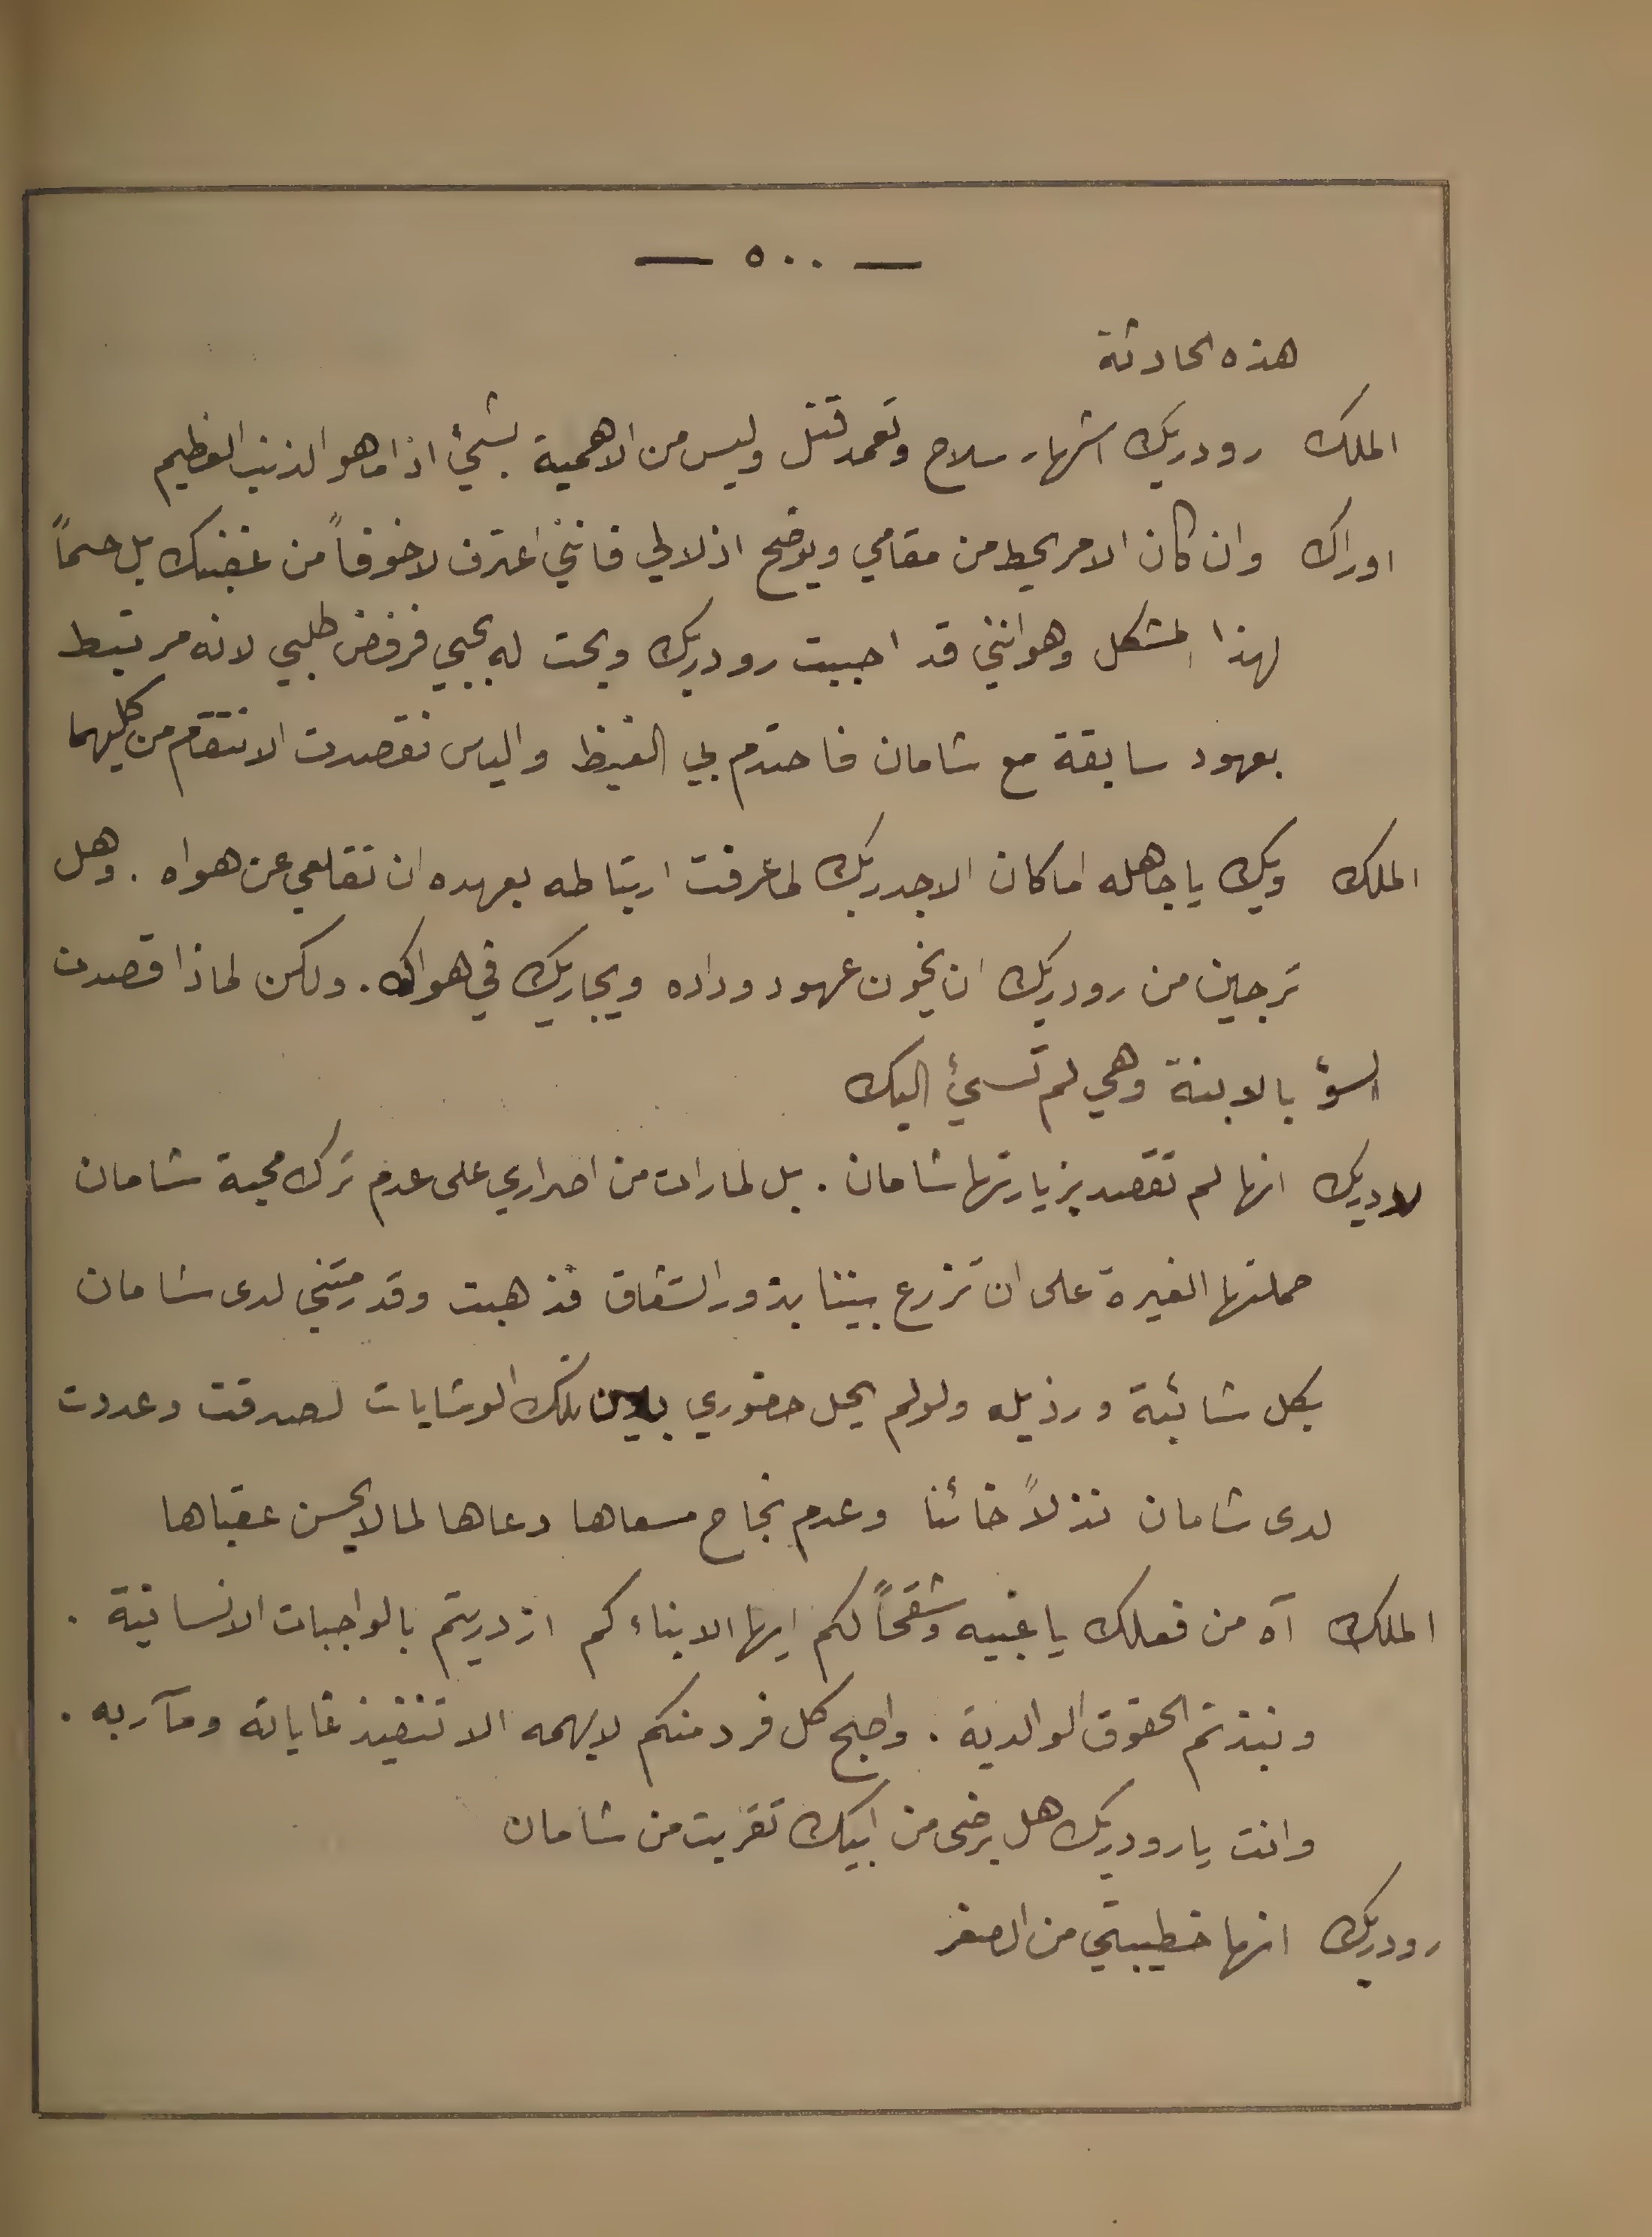 — ٥٠٠ —
هذه الحادثة
الملك رودريك اشهار سلاح وتعمد قتل وليس من الاهمية بشيء اذا ما هو الذنب العظيم
اوراك وان كان الامر يحط من مقامي ويوضح اذلالي فانني اعترف لا خوفاً من غضبك بل حسماً
لهذا المشكل وهو انني قد احببت رودريك وبحت له بحبي فرفض طلبي لانه مرتبط
بعهود سابقة مع شامان فاحتدم بي الغيظ والياس فقصدت الانتقام من كليهما
الملك ويك يا جاهله اما كان الاجدر بك لما عرفت ارتباطه بعهده ان تقلعي عن هواه . وهل
ترجين من رودريك ان يخون عهود وداده ويجاريك في هواك . ولكن لماذا قصدت
السؤ بالابنة وهي لم تسيء اليك
رودريك انها لم تقصد بزيارتها شامان . بل لما رات من اصراري على عدم ترك محبة شامان
حملتها الغيرة على ان تزرع بيننا بذور الشقاق فذهبت وقد رمتني لدى شامان
بكل شائبة ورذيله ولو لم يحل حضوري بين تلك الوشايات لصدقت وعددت
لدى شامان نذلاً خائنا وعدم نجاح مسعاها دعاها لما لا يحسن عقباها
الملك آه من فعلك يا غبيه وشقحاً لكم ايها الابناء كم ازدريتم بالواجبات الانسانية .
ونبذتم الحقوق الوالدية . واصبح كل فرد منكم لا يهمه الا تنفيذ غاياته ومآربه .
وانت يا رودريك هل برضى من ابيك تقربت من شامان
رودريك انها خطيبتي من الصغر